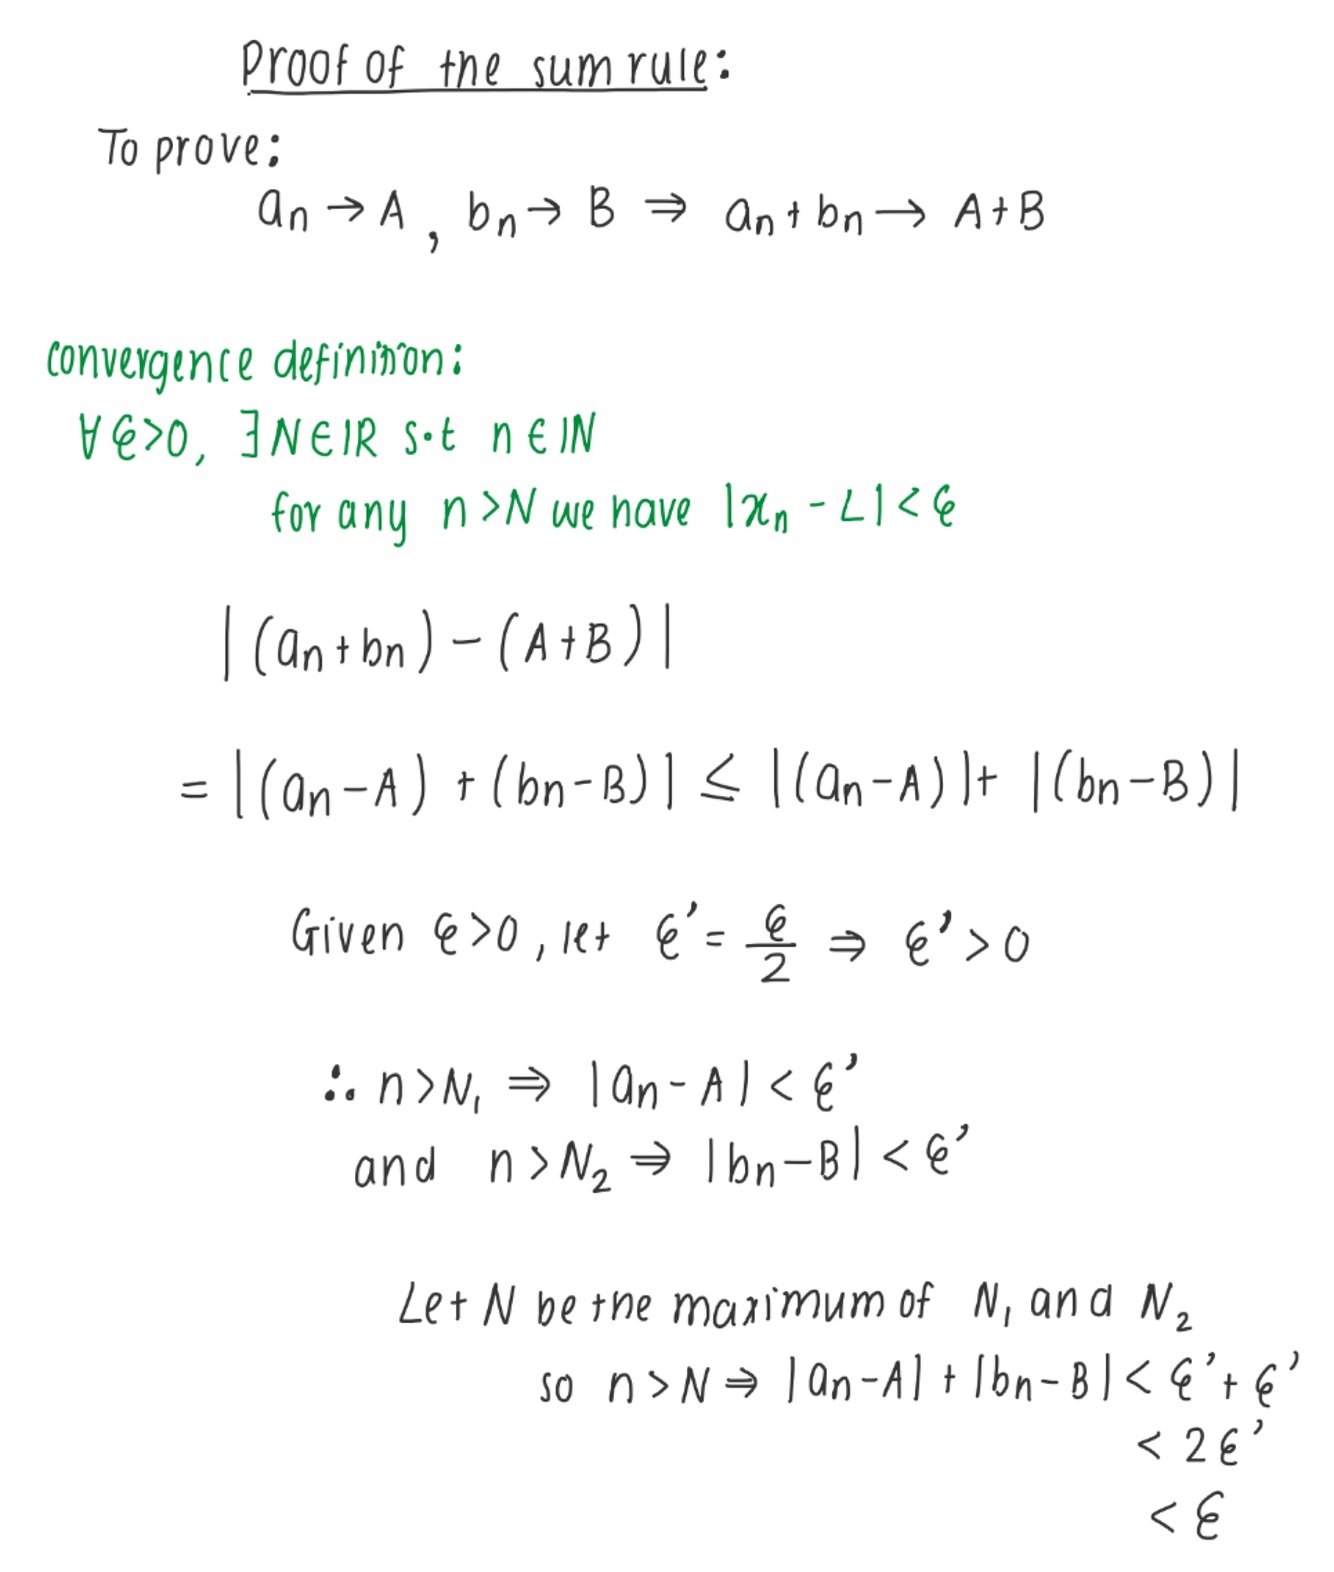 Proof of the sum rule:
To prove:
aₙ → A , bₙ → B ⇒ aₙ + bₙ → A+B
convergence definition:
∀ϵ>0, ∃N∈ℝ s.t n∈ℕ
for any n>N we have |xₙ - L|<ϵ
|(aₙ+bₙ) - (A+B)|
= |(aₙ-A) + (bₙ-B)| ≤ |(aₙ-A)|+ |(bₙ-B)|
Given ϵ>0, let ϵ' = ϵ/2 ⇒ ϵ'>0
∴ n>N₁ ⇒ |aₙ-A| < ϵ'
and n>N₂ ⇒ |bₙ-B| < ϵ'
Let N be the maximum of N₁ and N₂
so n>N ⇒ |aₙ-A| + |bₙ-B| < ϵ'+ϵ'
< 2ϵ'
< ϵ